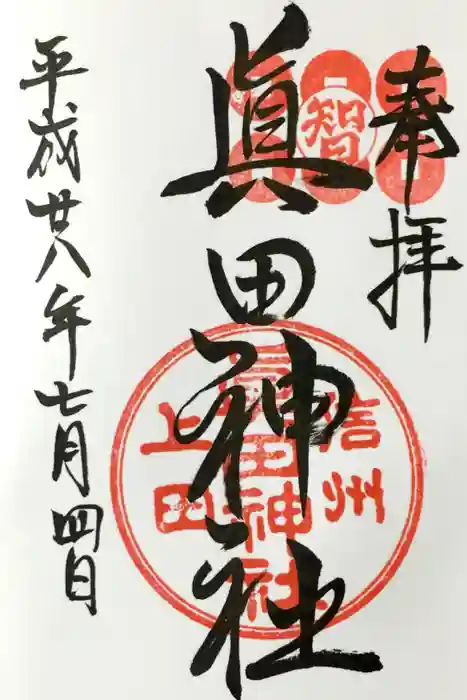 奉拝
智
眞田神社
信州
眞田神社
上田
平成廿八年七月四日